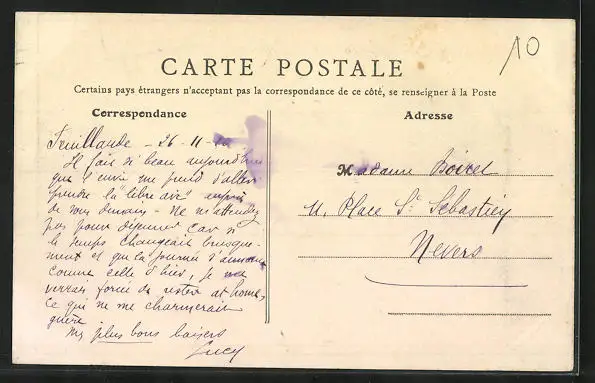 10
CARTE POSTALE
Certains pays étrangers n'acceptant pas la correspondance de ce côté, se renseigner à la Poste
Correspondance
Adresse
26-11-
Il fait si beau aujourd'hui
que l'envie me prend d'aller
prendre la "libre air"
de vous demain - Ne m'attendez
pas pour déjeuner car si
le temps changeait brusque-
ment et que la journée s'
comme celle d'hier, je me
verrais forcée de rester at home,
ce qui ne me charmerait
guère
Mes plus bons baisers
Lucy
Madame Boirel
11, Place St Sébastien
Nevers